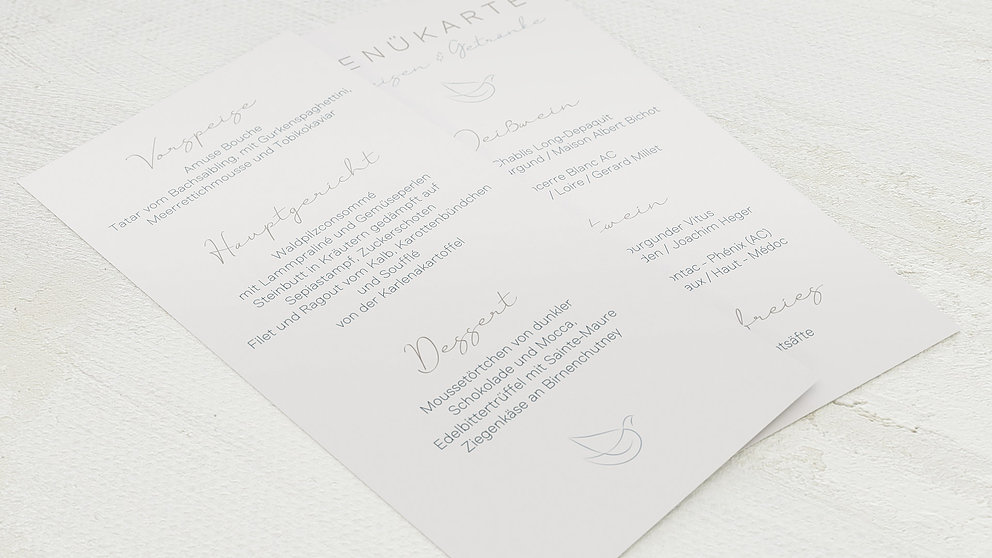 Vorspeise
Amuse Bouche
Tatar vom Bachsaibling, mit Gurkenspaghettini,
Meerrettichmousse und Tobikokaviar
Hauptgericht
Waldpilzconsommé
mit Lammpraliné und Gemüseperlen
Steinbutt in Kräutern gedämpft auf
Sepiastampf, Zuckerschoten
Filet und Ragout vom Kalb, Karottenbündchen
und Soufflé
von der Karlenakartoffel
Dessert
Moussetörtchen von dunkler
Schokolade und Mocca,
Edelbittertrüffel mit Sainte-Maure
Ziegenkäse an Birnenchutney
ENÜKARTE
isen & Getränke
eißwein
Chablis Long-Depaquit
rgund / Maison Albert Bichot
cerre Blanc AC
/ Loire / Gerard Millet
twein
burgunder Vitus
den / Joachim Heger
ontac - Phénix (AC)
aux / Haut - Médoc
freies
tsäfte